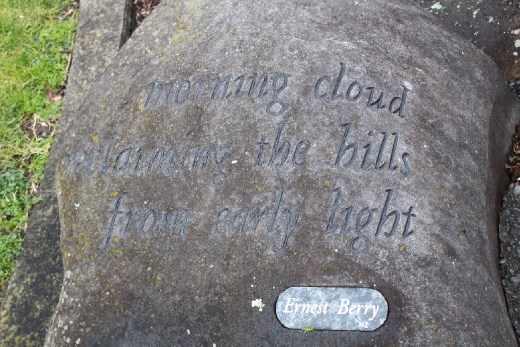 morning cloud
reclaiming the hills
from early light
Ernest Berry